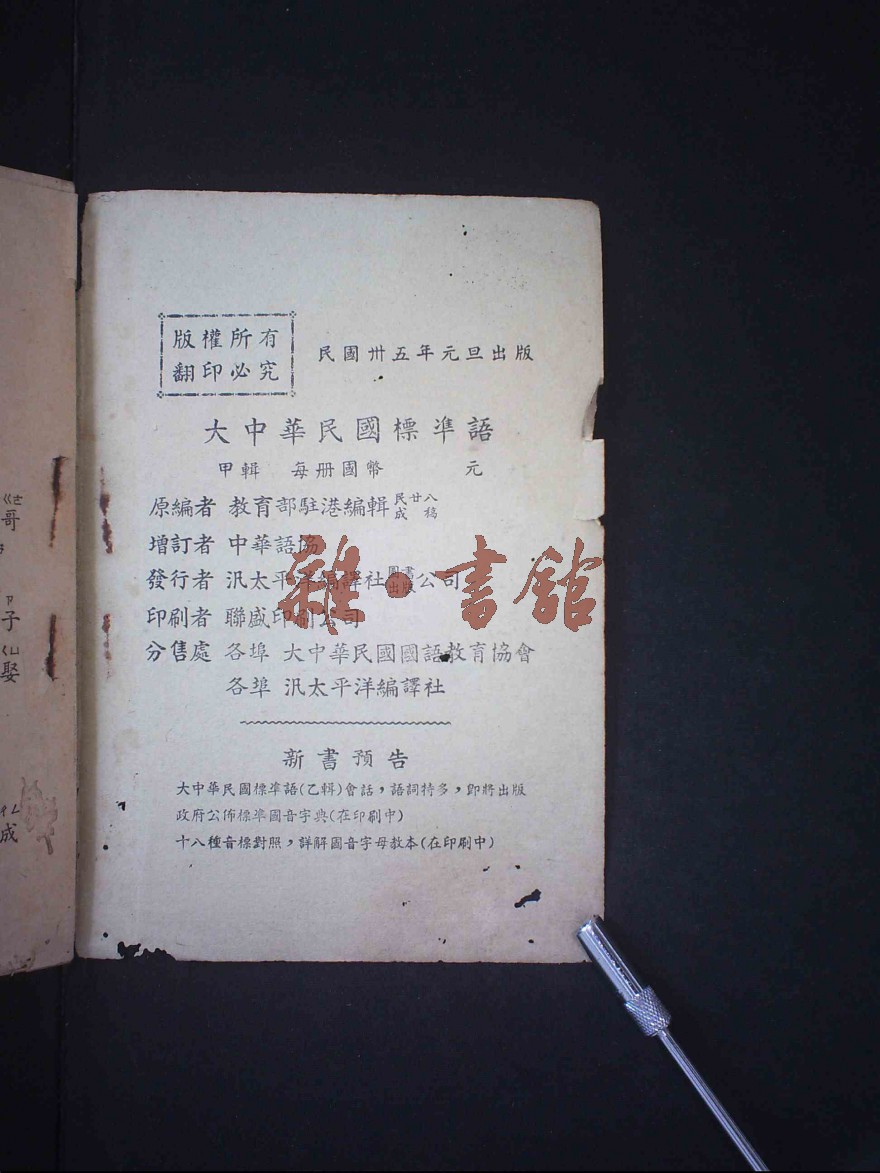 版權所有
翻印必究
民國卅五年元旦出版
大中華民國標準語
甲輯 每册國幣 元
原編者 教育部駐港編輯 民廿八成稿
增訂者 中華語協
發行者 汎太平洋編譯社圖書出版公司
印刷者 聯盛印刷公司
分售處 各埠 大中華民國國語教育協會
各埠 汎太平洋編譯社
新書預告
大中華民國標準語(乙輯)會話，語詞特多，即將出版
政府公佈標準國音字典(在印刷中)
十八種音標對照，詳解國音字母教本(在印刷中)
雜·書館
哥
子
娶
成